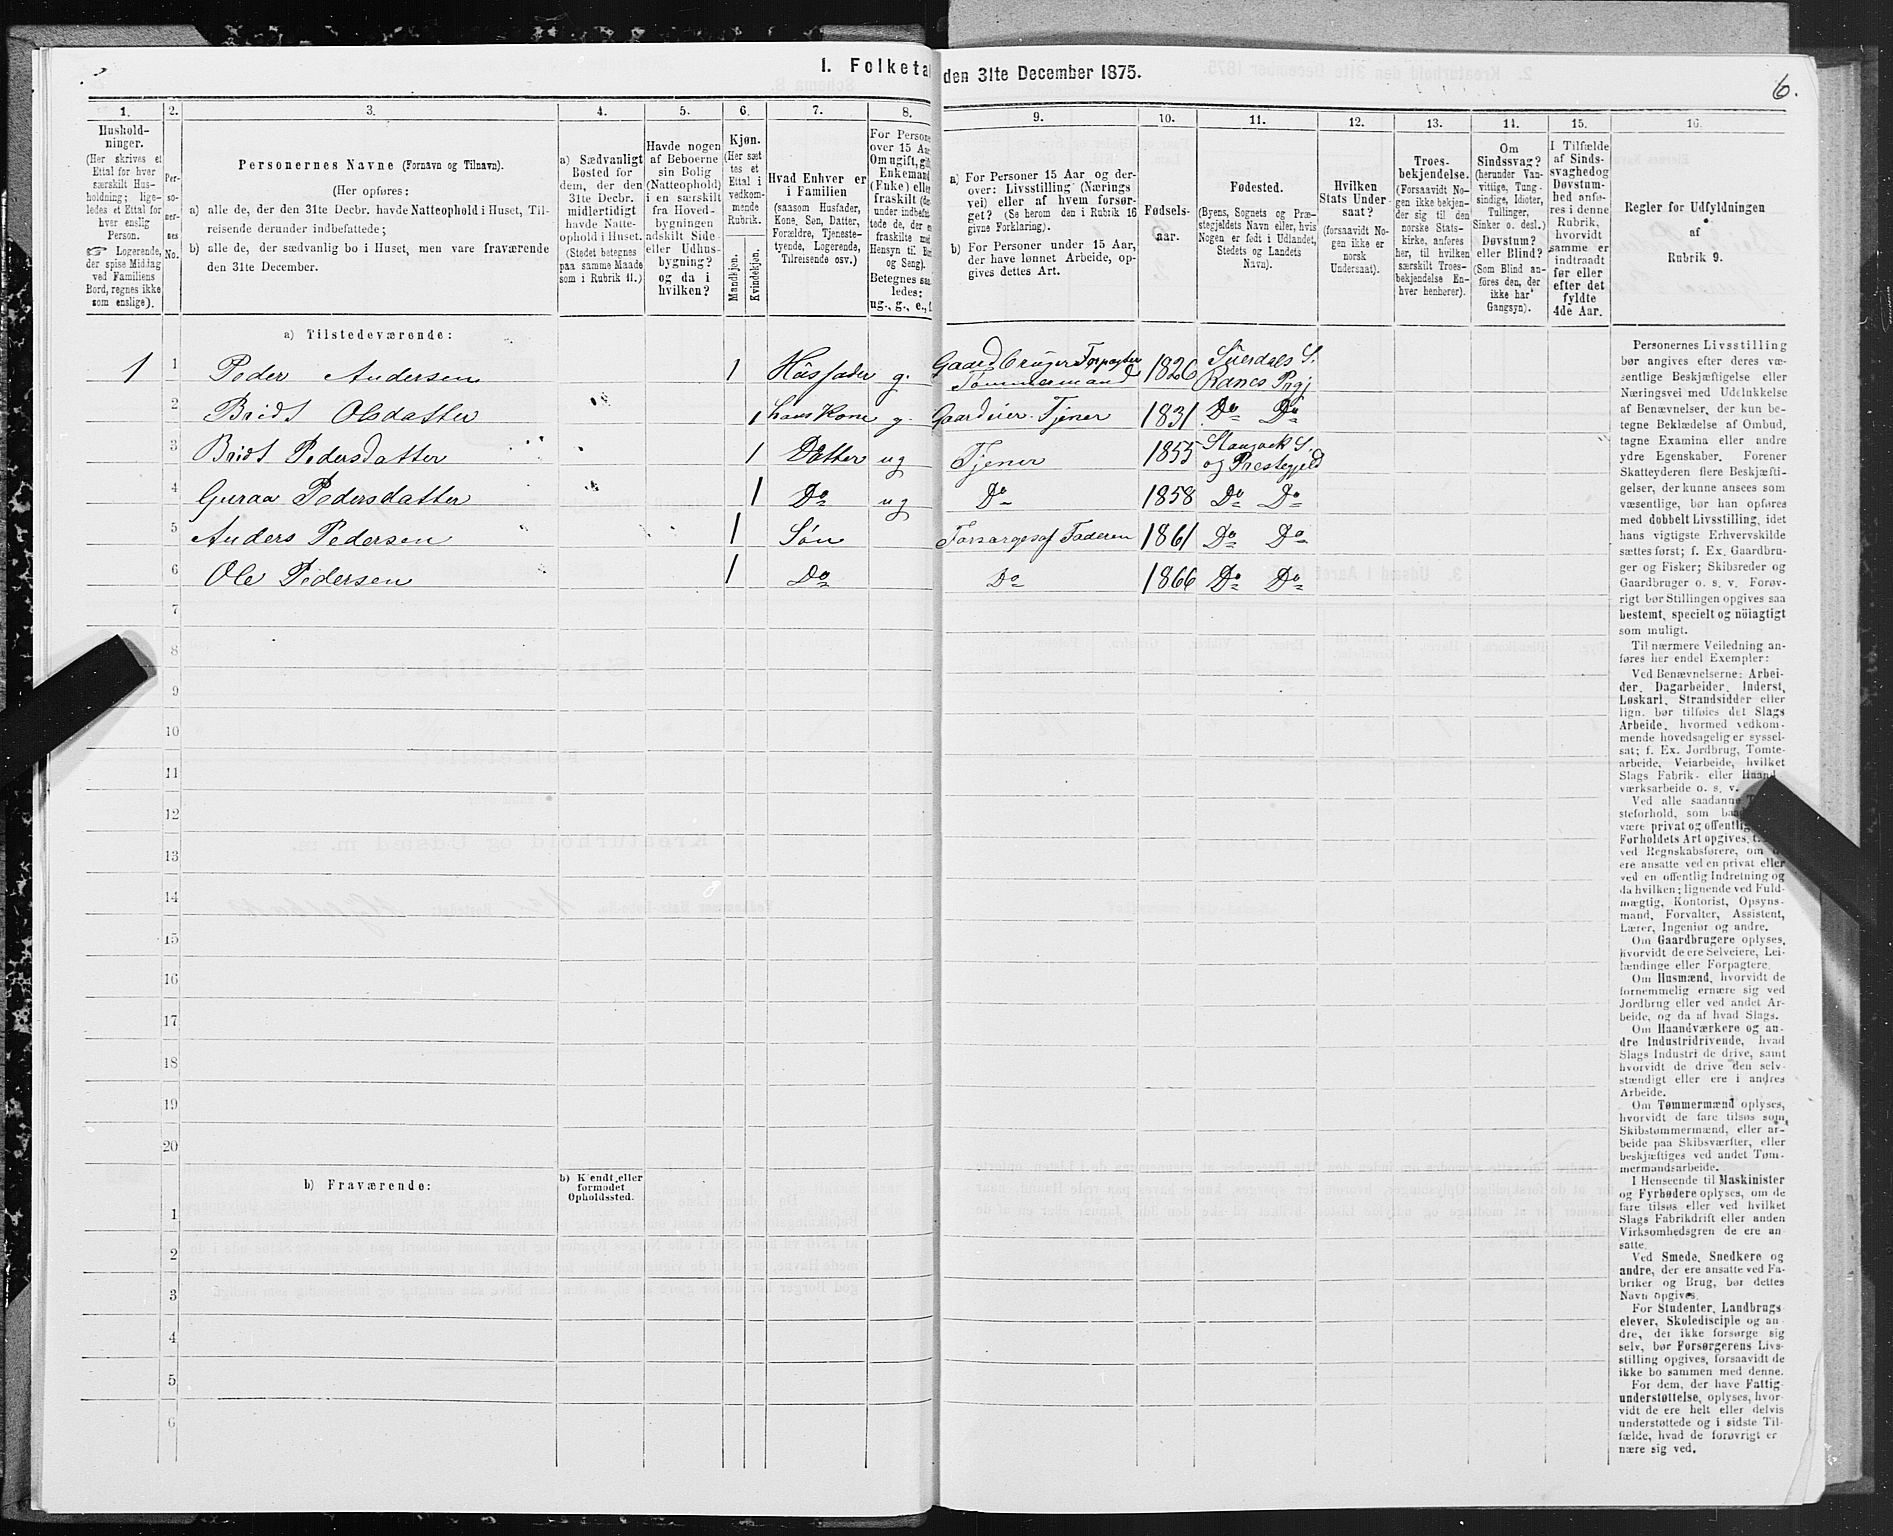 1. Folketal den 31te December 1875.
6.
1.
Hushold-
ninger.
(Her skrives et
Ettal for hver
særskilt Hus-
holdning; lige-
ledes et Ettal for
hver enslig
Person.
☞ Logerende,
der spise Middag
ved Familiens
Bord, regnes ikke
som enslige).
2.
Per-
so-
ner-
nes
No.
3.
Personernes Navne (Fornavn og Tilnavn).
(Her opføres:
a) alle de, der den 31te Decbr. havde Natteophold i Huset, Til-
reisende derunder indbefattede;
b) alle de, der sædvanlig bo i Huset, men vare fraværende
den 31te December.
4.
a) Sædvanligt
Bosted for
dem, der den
31te Decbr.
midlertidigt
havde Natte-
ophold i Huset.
(Stedet betegnes
paa samme Maade
som i Rubrik 11.)
5.
Havde nogen
af Beboerne
sin Bolig
(Natteophold)
i en særskilt
fra Hoved-
bygningen
adskilt Side
eller Udhus-
bygning?
og da i
hvilken?
6.
Kjøn.
(Her sæt
tes et
Ettal i
vedkom-
mende
Rubrik.
Mandkjøn.
Kvindekjøn.
7.
Hvad Enhver er
i Familien
(saasom Husfader,
Kone, Søn, Datter,
Forældre, Tjeneste-
tyende, Logerende,
Tilreisende osv.)
8.
For Persone
over 15 Aar
Om ugift, gift
Enkemand
(Enke) eller
fraskilt (de
under indbefat
tede de, der e
fraskilte med
Hensyn til Bo
og Seng).
Betegnes saa
ledes:
ug., g., e., f
9.
a) For Personer 15 Aar og der-
over: Livsstilling (Nærings
vei) eller af hvem forsør-
get? (Se herom den i Rubrik 16
givne Forklaring).
b) For Personer under 15 Aar,
der have lønnet Arbeide, op-
gives dettes Art.
10.
Fødsels-
aar.
11.
Fødested.
(Byens, Sognets og Præ-
stegjeldets Navn eller, hvis
Nogen er født i Udlandet,
Stedets og Landets
Navn).
12.
Hvilken
Stats Under
saat?
(forsaavidt No-
gen ikke er
norsk
Undersaat).
13.
Troes-
bekjendelse.
(Forsaavidt No-
gen ikke bekjen-
der sig til den
norske Stats-
kirke, anføres
her, til hvilken
særskilt Troes-
bekjendelse En-
hver henhører).
14.
Om
Sindssvag?
(herunder Van-
vittige, Tung-
sindige, Idioter,
Tullinger,
Sinker o. desl.)
Døvstum?
eller Blind?
(Som Blind an-
føres den, der
ikke har
Gangsyn).
15.
I Tilfælde
af Sinds-
svaghedog
Døvstum-
hed anfø-
res i denne
Rubrik,
hvorvidt
samme er
indtraadt
før eller
efter det
fyldte
4de Aar.
16.
Regler for Udfyldningen
af
Rubrik 9.
a) Tilstedeværende:
1 1 Peder Andersen 1 Husfader g. Gaard Bruger Forpagter Tømmermand 1826 Suerdals S. Ranes Prgj
2 Bridt Olsdatter 1 hans Kone g. Gaardeier Tjener 1831 Do Do
3 Bridt Pedersdatter 1 Datter ug Tjener 1855 Stangvik S. og Prestegjeld
4 Guraa Pedersdatter 1 Do ug Do 1858 Do Do
5 Anders Pedersen 1 Søn Forsørges af Faderen 1861 Do Do
6 Ole Pedersen 1 Do Do 1866 Do Do
7
8
9
10
11
12
13
14
15
16
17
18
19
20
b) Fraværende:
b) Kjendt eller
formodet
Opholdssted.
1
2
3
4
5
6
Personernes Livsstilling
bør angives efter deres væ-
sentlige Beskjæftigelse eller
Næringsvei med Udelukkelse
af Benævnelser, der kun be-
tegne Beklædelse af Ombud,
tagne Examina eller andre
ydre Egenskaber. Forener
Skatteyderen flere Beskjæfti-
gelser, der kunne ansees som
væsentlige, bør han opføres
med dobbelt Livsstilling, idet
hans vigtigste Erhvervskilde
sættes først; f. Ex. Gaardbru-
ger og Fisker; Skibsreder og
Gaardbruger o. s. v. Forøv-
rigt bør Stillingen opgives saa
bestemt, specielt og nöiagtigt
som muligt.
Til nærmere Veiledning an-
føres her endel Exempler:
Ved Benævnelserne: Arbei-
der, Dagarbeider, Inderst,
Løskarl, Strandsidder eller
lign. bør tilføies det Slags
Arbeide, hvormed vedkom-
mende hovedsagelig er syssel-
sat; f. Ex. Jordbrug, Tomte-
arbeide, Veiarbeide, hvilket
Slags Fabrik- eller Haand-
værksarbeide o. s. v.
Ved alle saadanne
steforhold, som
være privat og offentlig
Forholdets Art opgives,
ved Regnskabsførere, om
ere ansatte ved en privat eller
ved en offentlig Indretning og
da hvilken; lignende ved Fuld-
mægtig, Kontorist, Opsyns-
mand, Forvalter, Assistent,
Lærer, Ingeniør og andre.
Om Gaardbrugere oplyses,
hvorvidt de ere Selveiere, Lei-
lændinge eller Forpagtere.
Om Husmænd, hvorvidt de
fornemmelig ernære sig ved
Jordbrug eller ved andet Ar-
beide, og da af hvad Slags.
Om Haandværkere og an-
dre Industridrivende, hvad
Slags Industri de drive, samt
hvorvidt de drive den selv-
stændigt eller ere i andres
Arbeide.
Om Tømmermænd oplyses,
hvorvidt de fare tilsøs som
Skibstømmermænd, eller ar-
beide paa Skibsværfter, eller
beskjæftiges ved andet Tøm-
mermandsarbeide.
I Henseende til Maskinister
og Fyrbødere oplyses, om de
fare tilsøs eller ved hvilket
Slags Fabrikdrift eller anden
Virksomhedsgren de ere an-
satte.
Ved Smede, Snedkere og
andre, der ere ansatte ved Fa-
briker og Brug, bør dettes
Navn opgives.
For Studenter, Landbrugs
elever, Skoledisciple og an-
dre, der ikke forsørge sig
selv, bør Forsørgerens Livs-
stilling opgives, forsaavidt de
ikke bo sammen med denne.
For dem, der have Fattig-
understøttelse, oplyses, hvor-
vidt de ere helt eller delvis
understøttede og i sidste Til-
fælde, hvad de forøvrigt er
nære sig ved.